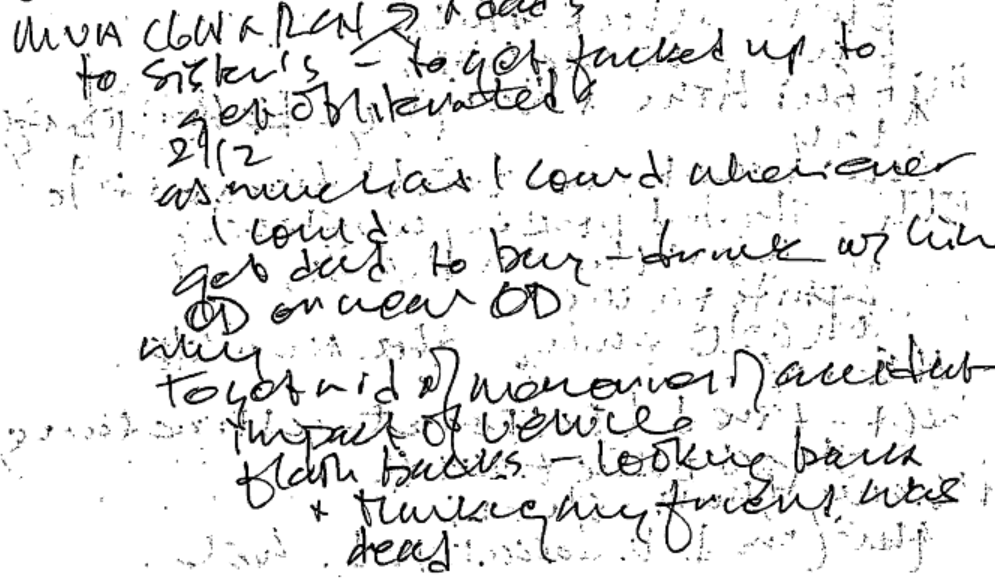 MVA
to sister's - to get fucked up to
get obliterated
2912
as much as I could whenever
I could
get dad to buy - drink w/ him
OD or near OD
why
To get rid of memories of accident
impact of vehicle
flash backs - looking back
+ thinking my friend was
dead.